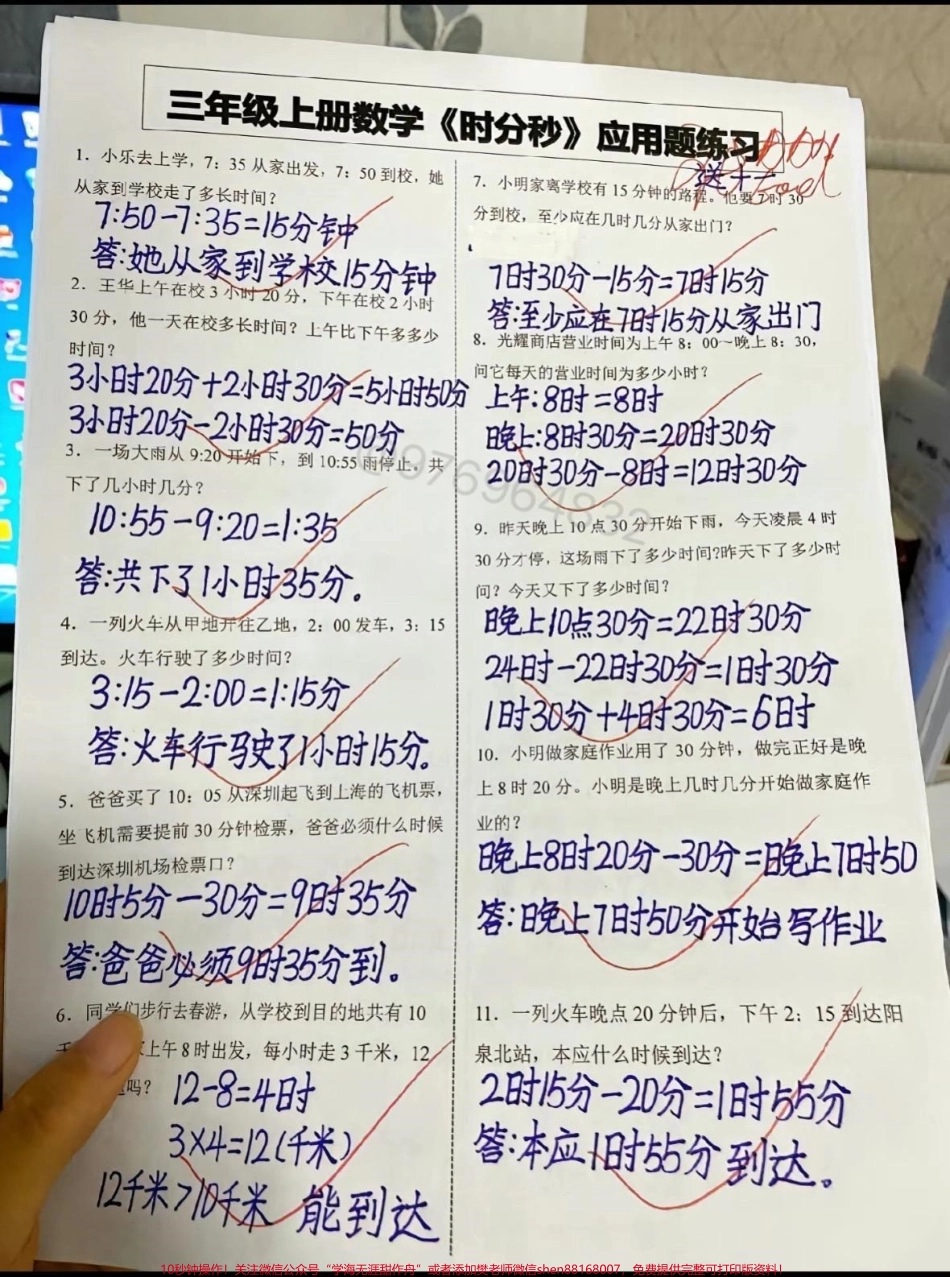 三年级上册数学《时分秒》应用题练习
1. 小乐去上学，7：35 从家出发，7：50 到校，她
从家到学校走了多长时间？
7:50-7:35=15分钟
答:她从家到学校15分钟
2. 王华上午在校 3 小时 20 分，下午在校 2 小时
30 分，他一天在校多长时间？上午比下午多多少
时间？
3小时20分+2小时30分=5小时50分
3小时20分-2小时30分=50分
3. 一场大雨从 9:20 开始下，到 10:55 雨停止。共
下了几小时几分？
10:55-9:20=1:35
答:共下了1小时35分.
4. 一列火车从甲地开往乙地，2：00 发车，3：15
到达。火车行驶了多少时间？
3:15-2:00=1:15分
答:火车行驶了1小时15分。
5. 爸爸买了 10：05 从深圳起飞到上海的飞机票，
坐飞机需要提前 30 分钟检票，爸爸必须什么时候
到达深圳机场检票口？
10时5分-30分=9时35分
答:爸爸必须9时35分到。
6. 同学们步行去春游，从学校到目的地共有 10
上午 8 时出发，每小时走 3 千米，12
吗？
12-8=4时
3×4=12(千米)
12千米>10千米 能到达
7. 小明家离学校有 15 分钟的路程。他要 7 时 30
分到校，至少应在几时几分从家出门？
7时30分-15分=7时15分
答:至少应在7时15分从家出门
8. 光耀商店营业时间为上午 8：00～晚上 8：30，
问它每天的营业时间为多少小时？
上午:8时=8时
晚上:8时30分=20时30分
20时30分-8时=12时30分
9. 昨天晚上 10 点 30 分开始下雨，今天凌晨 4 时
30 分才停，这场雨下了多少时间?昨天下了多少时
间？今天又下了多少时间？
晚上10点30分=22时30分
24时-22时30分=1时30分
1时30分+4时30分=6时
10. 小明做家庭作业用了 30 分钟，做完正好是晚
上 8 时 20 分。小明是晚上几时几分开始做家庭作
业的？
晚上8时20分-30分=晚上7时50
答:晚上7时50分开始写作业
11. 一列火车晚点 20 分钟后，下午 2：15 到达阳
泉北站，本应什么时候到达？
2时15分-20分=1时55分
答:本应1时55分到达。
@976964832
10秒钟操作！关注微信公众号“学海无涯甜作舟”或者添加樊老师微信shen88168007，免费提供完整可打印版资料！